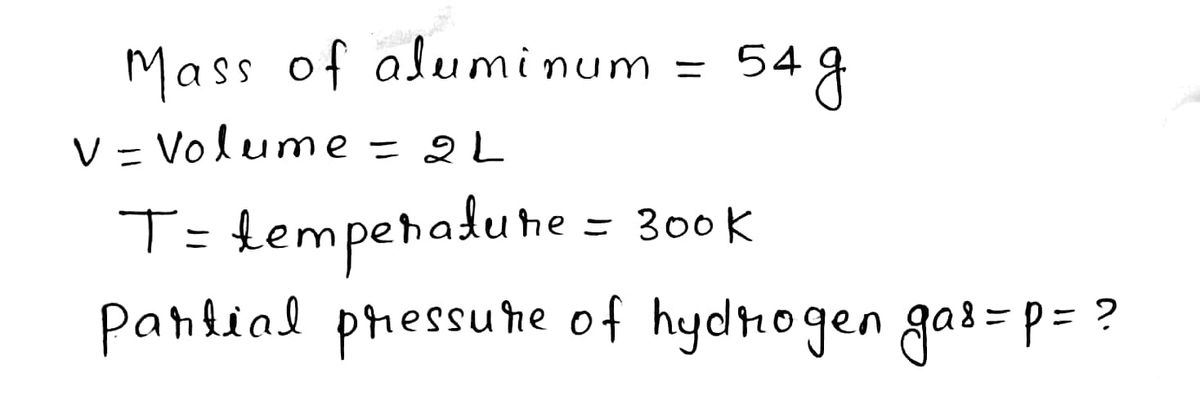 Mass of aluminum = 54 g
V = Volume = 2 L
T = temperature = 300 K
Partial pressure of hydrogen gas = p = ?